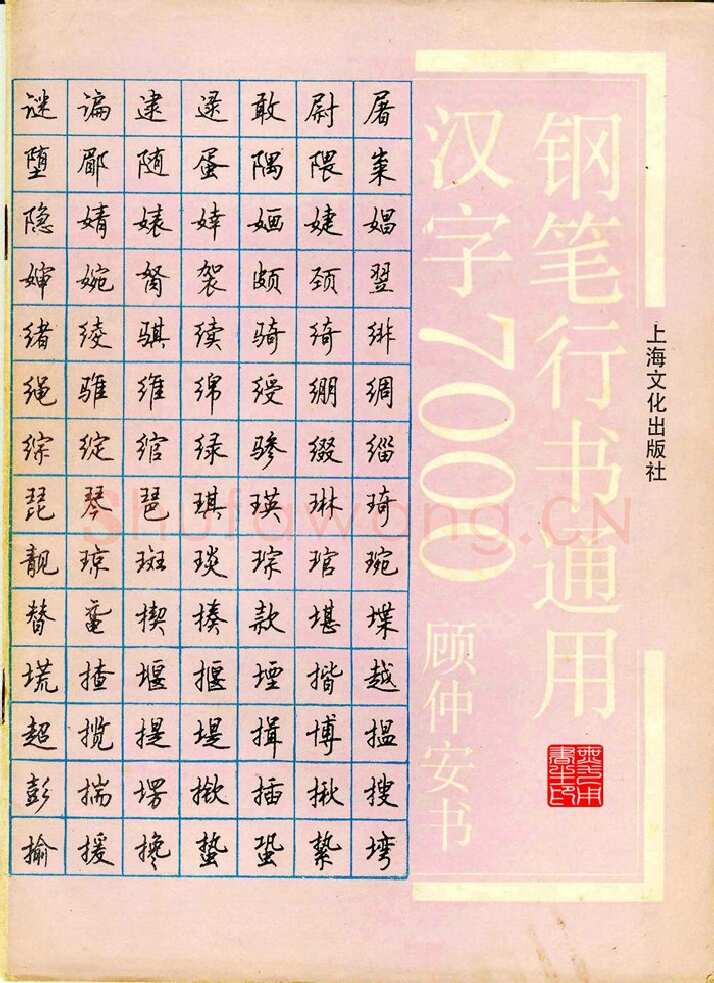 谜谝逮逯敢尉屠
堕郿随蛋隅隈粜
隐婧婊婞婳婕娼
婶婉胬袈颇颈翌
绪绫骐续骑绮绯
绳骓维绵绶绷绸
综绽绾绿骖缀缁
琵琴琶琪瑛琳琦
靓琼斑琰琮琯琬
替鼋揳揍款堪堞
塃揸堰揠堙揩越
超揽提堤揖博揾
彭揣塄揿插揪搜
揄援搀蛰蛩絷塆
钢笔行书通用
汉字7000
顾仲安书
上海文化出版社
Shufawang.CN